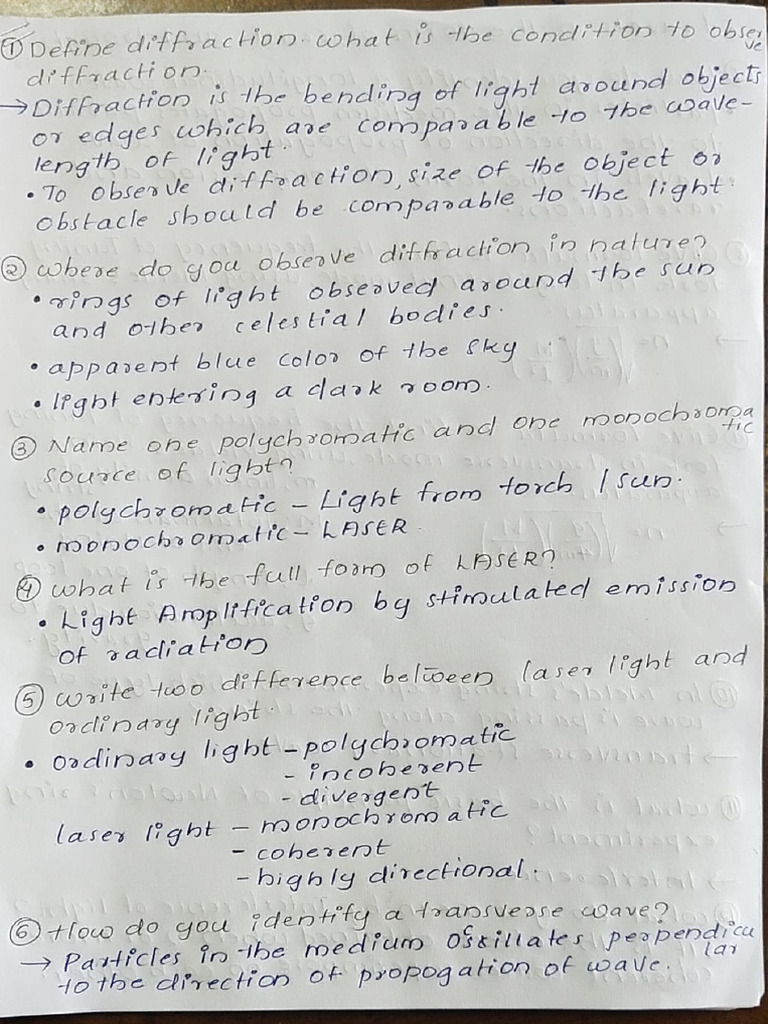 ① Define diffraction. what is the condition to observe
diffraction.
→ Diffraction is the bending of light around objects
or edges which are comparable to the wave-
length of light.
• To observe diffraction, size of the object or
obstacle should be comparable to the light.
② where do you observe diffraction in nature?
• rings of light observed around the sun
and other celestial bodies.
• apparent blue color of the sky
• light entering a dark room.
③ Name one polychromatic and one monochromatic
source of light?
• polychromatic - Light from torch / sun.
• monochromatic - LASER.
④ what is the full form of LASER?
• Light Amplification by stimulated emission
of radiation
⑤ write two difference between laser light and
ordinary light.
• ordinary light - polychromatic
- incoherent
- divergent
laser light - monochromatic
- coherent
- highly directional.
⑥ How do you identify a transverse wave?
→ Particles in the medium oscillates perpendicular
to the direction of propogation of wave.